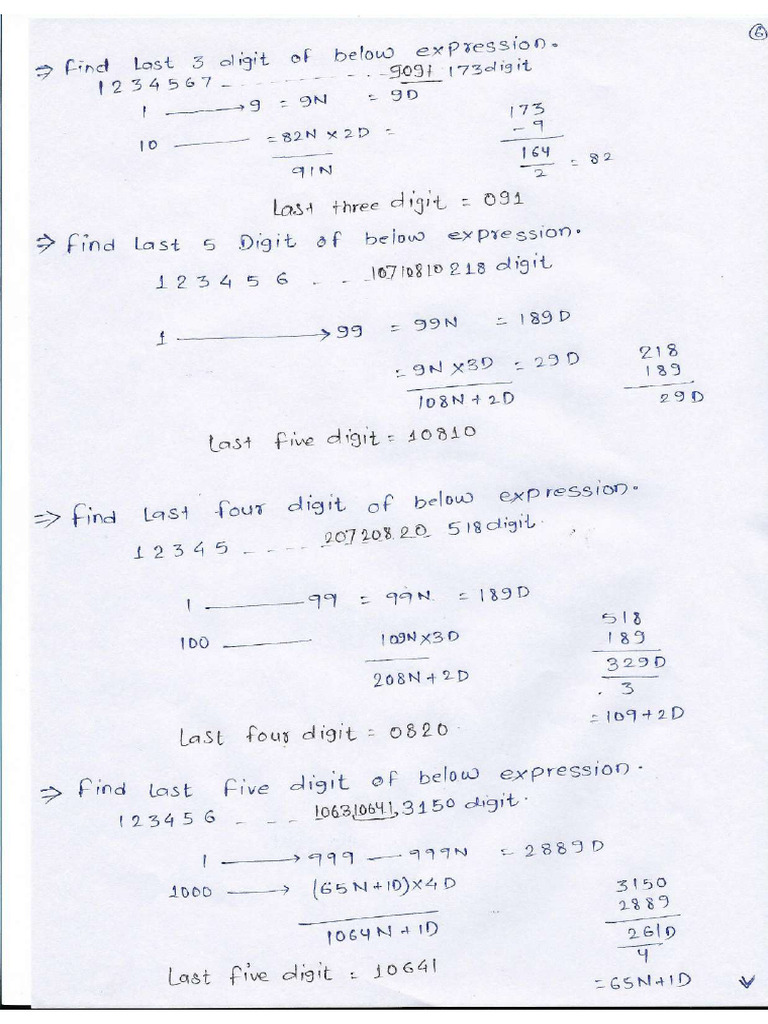 6
⇒ Find Last 3 digit of below expression.
1 2 3 4 5 6 7 - - - - - - - - 9091 173 digit
1 ⟶ 9 = 9N = 9D
10 —— = 82N × 2D =
91N
173
- 9
164
2 = 82
Last three digit = 091
⇒ Find Last 5 Digit of below expression.
1 2 3 4 5 6 - - - 10710810 218 digit
1 ⟶ 99 = 99N = 189D
= 9N × 3D = 29D
108N + 2D
218
189
29D
Last five digit = 10810
⇒ Find Last four digit of below expression.
1 2 3 4 5 - - - - - 207208 20 518 digit.
1 —— 99 = 99N = 189D
100 —— 109N × 3D
208N + 2D
518
189
329D
3
= 109 + 2D
Last four digit = 0820
⇒ Find Last five digit of below expression.
1 2 3 4 5 6 - - - - 106310641, 3150 digit.
1 ⟶ 999 — 999N = 2889D
1000 ⟶ (65N + 1D) × 4D
1064N + 1D
3150
2889
261D
4
= 65N + 1D
Last five digit = 10641